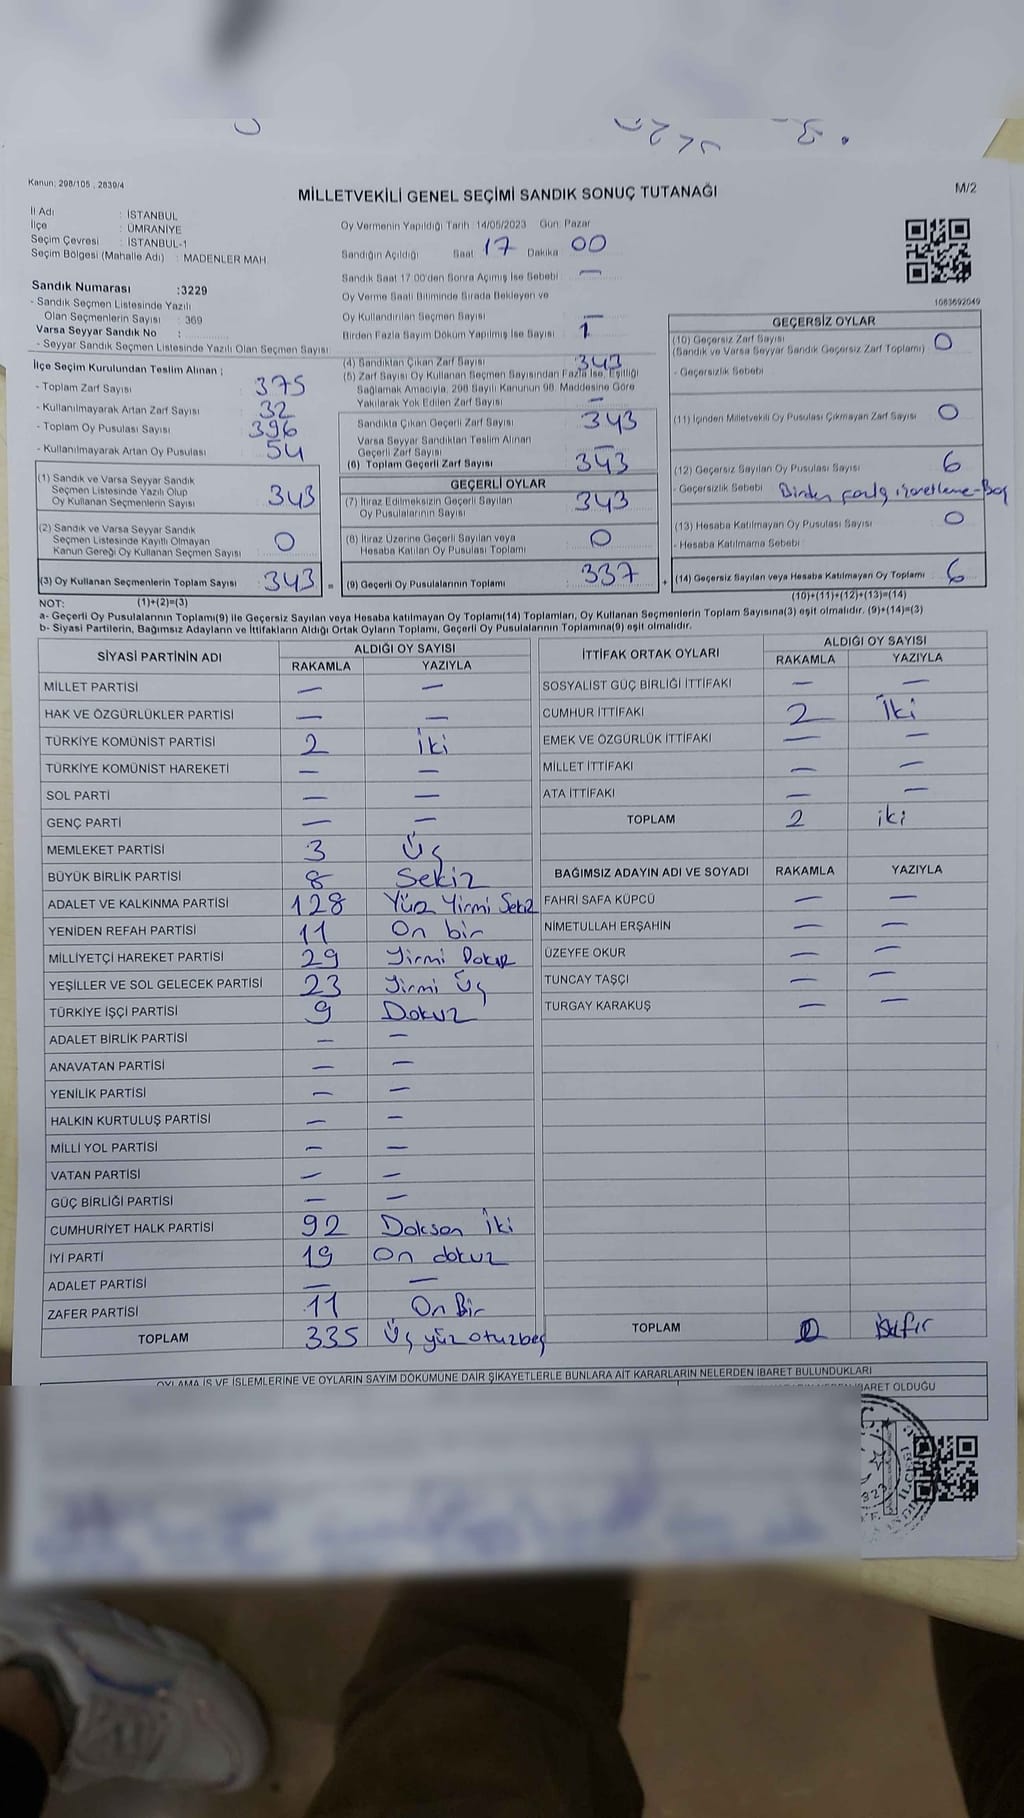 Kanun: 298/105 , 2839/4
MİLLETVEKİLİ GENEL SEÇİMİ SANDIK SONUÇ TUTANAĞI
M/2
İl Adı : İSTANBUL
İlçe : ÜMRANİYE
Seçim Çevresi : İSTANBUL-1
Seçim Bölgesi (Mahalle Adı) : MADENLER MAH.
Sandık Numarası :3229
- Sandık Seçmen Listesinde Yazılı
Olan Seçmenlerin Sayısı : 369
Varsa Seyyar Sandık No :
- Seyyar Sandık Seçmen Listesinde Yazılı Olan Seçmen Sayısı
Oy Vermenin Yapıldığı Tarih : 14/05/2023 Gün: Pazar
Sandığın Açıldığı Saat 17 Dakika 00
Sandık Saat 17.00'den Sonra Açımış İse Sebebi : —
Oy Verme Saati Bitiminde Sırada Bekleyen ve
Oy Kullandırılan Seçmen Sayısı —
Birden Fazla Sayım Döküm Yapılmış İse Sayısı 1
1063692049
İlçe Seçim Kurulundan Teslim Alınan ;
- Toplam Zarf Sayısı 375
- Kullanılmayarak Artan Zarf Sayısı 32
- Toplam Oy Pusulası Sayısı 396
- Kullanılmayarak Artan Oy Pusulası 54
(1) Sandık ve Varsa Seyyar Sandık
Seçmen Listesinde Yazılı Olup
Oy Kullanan Seçmenlerin Sayısı 343
(2) Sandık ve Varsa Seyyar Sandık
Seçmen Listesinde Kayıtlı Olmayan
Kanun Gereği Oy Kullanan Seçmen Sayısı 0
(3) Oy Kullanan Seçmenlerin Toplam Sayısı 343 =
(4) Sandıktan Çıkan Zarf Sayısı 343
(5) Zarf Sayısı Oy Kullanan Seçmen Sayısından Fazla İse, Eşitliği
Sağlamak Amacıyla, 298 Sayılı Kanunun 98. Maddesine Göre
Yakılarak Yok Edilen Zarf Sayısı —
Sandıkta Çıkan Geçerli Zarf Sayısı 343
Varsa Seyyar Sandıktan Teslim Alınan
Geçerli Zarf Sayısı —
(6) Toplam Geçerli Zarf Sayısı 343
GEÇERLİ OYLAR
(7) İtiraz Edilmeksizin Geçerli Sayılan
Oy Pusulalarının Sayısı 343
(8) İtiraz Üzerine Geçerli Sayılan veya
Hesaba Katılan Oy Pusulası Toplamı 0
(9) Geçerli Oy Pusulalarının Toplamı : 337 +
GEÇERSİZ OYLAR
(10) Geçersiz Zarf Sayısı 0
(Sandık ve Varsa Seyyar Sandık Geçersiz Zarf Toplamı)
- Geçersizlik Sebebi
(11) İçinden Milletvekili Oy Pusulası Çıkmayan Zarf Sayısı 0
(12) Geçersiz Sayılan Oy Pusulası Sayısı 6
- Geçersizlik Sebebi Birden fazla işaretleme-Boş
(13) Hesaba Katılmayan Oy Pusulası Sayısı 0
- Hesaba Katılmama Sebebi
(14) Geçersiz Sayılan veya Hesaba Katılmayan Oy Toplamı 6
NOT: (1)+(2)=(3)
(10)+(11)+(12)+(13)=(14)
a- Geçerli Oy Pusulalarının Toplamı(9) ile Geçersiz Sayılan veya Hesaba katılmayan Oy Toplamı(14) Toplamları, Oy Kullanan Seçmenlerin Toplam Sayısına(3) eşit olmalıdır. (9)+(14)=(3)
b- Siyasi Partilerin, Bağımsız Adayların ve İttifakların Aldığı Ortak Oyların Toplamı, Geçerli Oy Pusulalarının Toplamına(9) eşit olmalıdır.
SİYASİ PARTİNİN ADI ALDIĞI OY SAYISI
RAKAMLA YAZIYLA
MİLLET PARTİSİ — —
HAK VE ÖZGÜRLÜKLER PARTİSİ — —
TÜRKİYE KOMÜNİST PARTİSİ 2 İki
TÜRKİYE KOMÜNİST HAREKETİ — —
SOL PARTİ — —
GENÇ PARTİ — —
MEMLEKET PARTİSİ 3 Üç
BÜYÜK BİRLİK PARTİSİ 8 Sekiz
ADALET VE KALKINMA PARTİSİ 128 Yüz Yirmi Sekiz
YENİDEN REFAH PARTİSİ 11 On bir
MİLLİYETÇİ HAREKET PARTİSİ 29 Yirmi Dokuz
YEŞİLLER VE SOL GELECEK PARTİSİ 23 Yirmi Üç
TÜRKİYE İŞÇİ PARTİSİ 9 Dokuz
ADALET BİRLİK PARTİSİ — —
ANAVATAN PARTİSİ — —
YENİLİK PARTİSİ — —
HALKIN KURTULUŞ PARTİSİ — —
MİLLİ YOL PARTİSİ — —
VATAN PARTİSİ — —
GÜÇ BİRLİĞİ PARTİSİ — —
CUMHURİYET HALK PARTİSİ 92 Doksan İki
İYİ PARTİ 19 On dokuz
ADALET PARTİSİ — —
ZAFER PARTİSİ 11 On Bir
TOPLAM 335 Üç yüz otuzbeş
İTTİFAK ORTAK OYLARI ALDIĞI OY SAYISI
RAKAMLA YAZIYLA
SOSYALİST GÜÇ BİRLİĞİ İTTİFAKI — —
CUMHUR İTTİFAKI 2 İki
EMEK VE ÖZGÜRLÜK İTTİFAKI — —
MİLLET İTTİFAKI — —
ATA İTTİFAKI — —
TOPLAM 2 iki
BAĞIMSIZ ADAYIN ADI VE SOYADI RAKAMLA YAZIYLA
FAHRİ SAFA KÜPCÜ — —
NİMETULLAH ERŞAHİN — —
ÜZEYFE OKUR — —
TUNCAY TAŞÇI — —
TURGAY KARAKUŞ — —
TOPLAM 0 sıfır
OYLAMA İŞ VE İŞLEMLERİNE VE OYLARIN SAYIM DÖKÜMÜNE DAİR ŞİKAYETLERLE BUNLARA AİT KARARLARIN NELERDEN İBARET BULUNDUKLARI
İBARET OLDUĞU